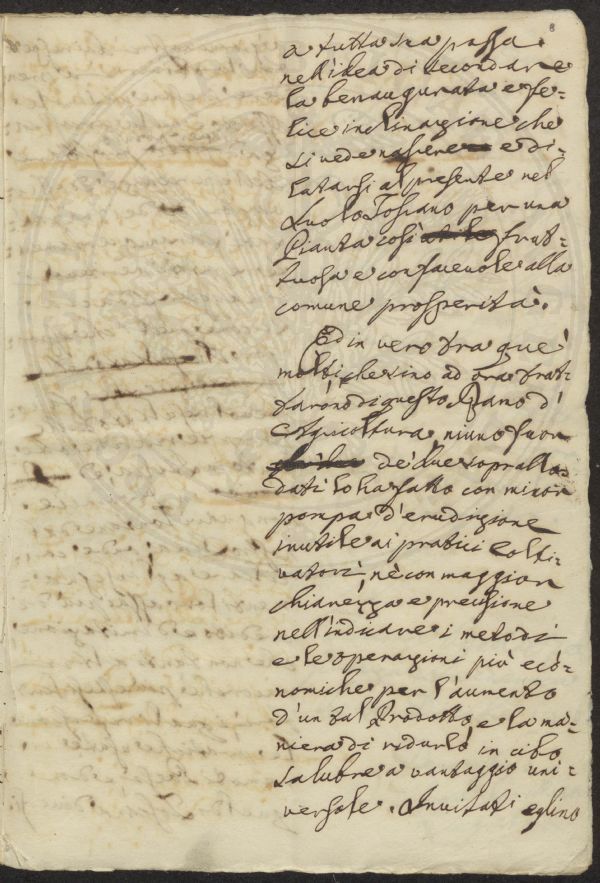 8
a tutta sua possa.
nell'idea di secondare
la benaugurata e fe=
lice inclinazione che
si vede nascere e di=
latarsi al presente nel
Suolo Toscano per una
Pianta così frut=
tuosa e confacevole alla
comune prosperità.
Ed in vero tra que'
molti che sino ad ora trat=
tarono di questo Ramo d'
Agricoltura, niuno fuor
de' due soprallo=
dati lo ha fatto con minor
pompa d'erudizione
inutile ai pratici Colti=
vatori, nè con maggior
chiarezza e precisione
nell'indicare i metodi
e le operazioni più eco=
nomiche per l'aumento
d'un tal Prodotto, e la ma=
niera di ridurlo in cibo
salubre a vantaggio uni=
versale. Invitati eglino